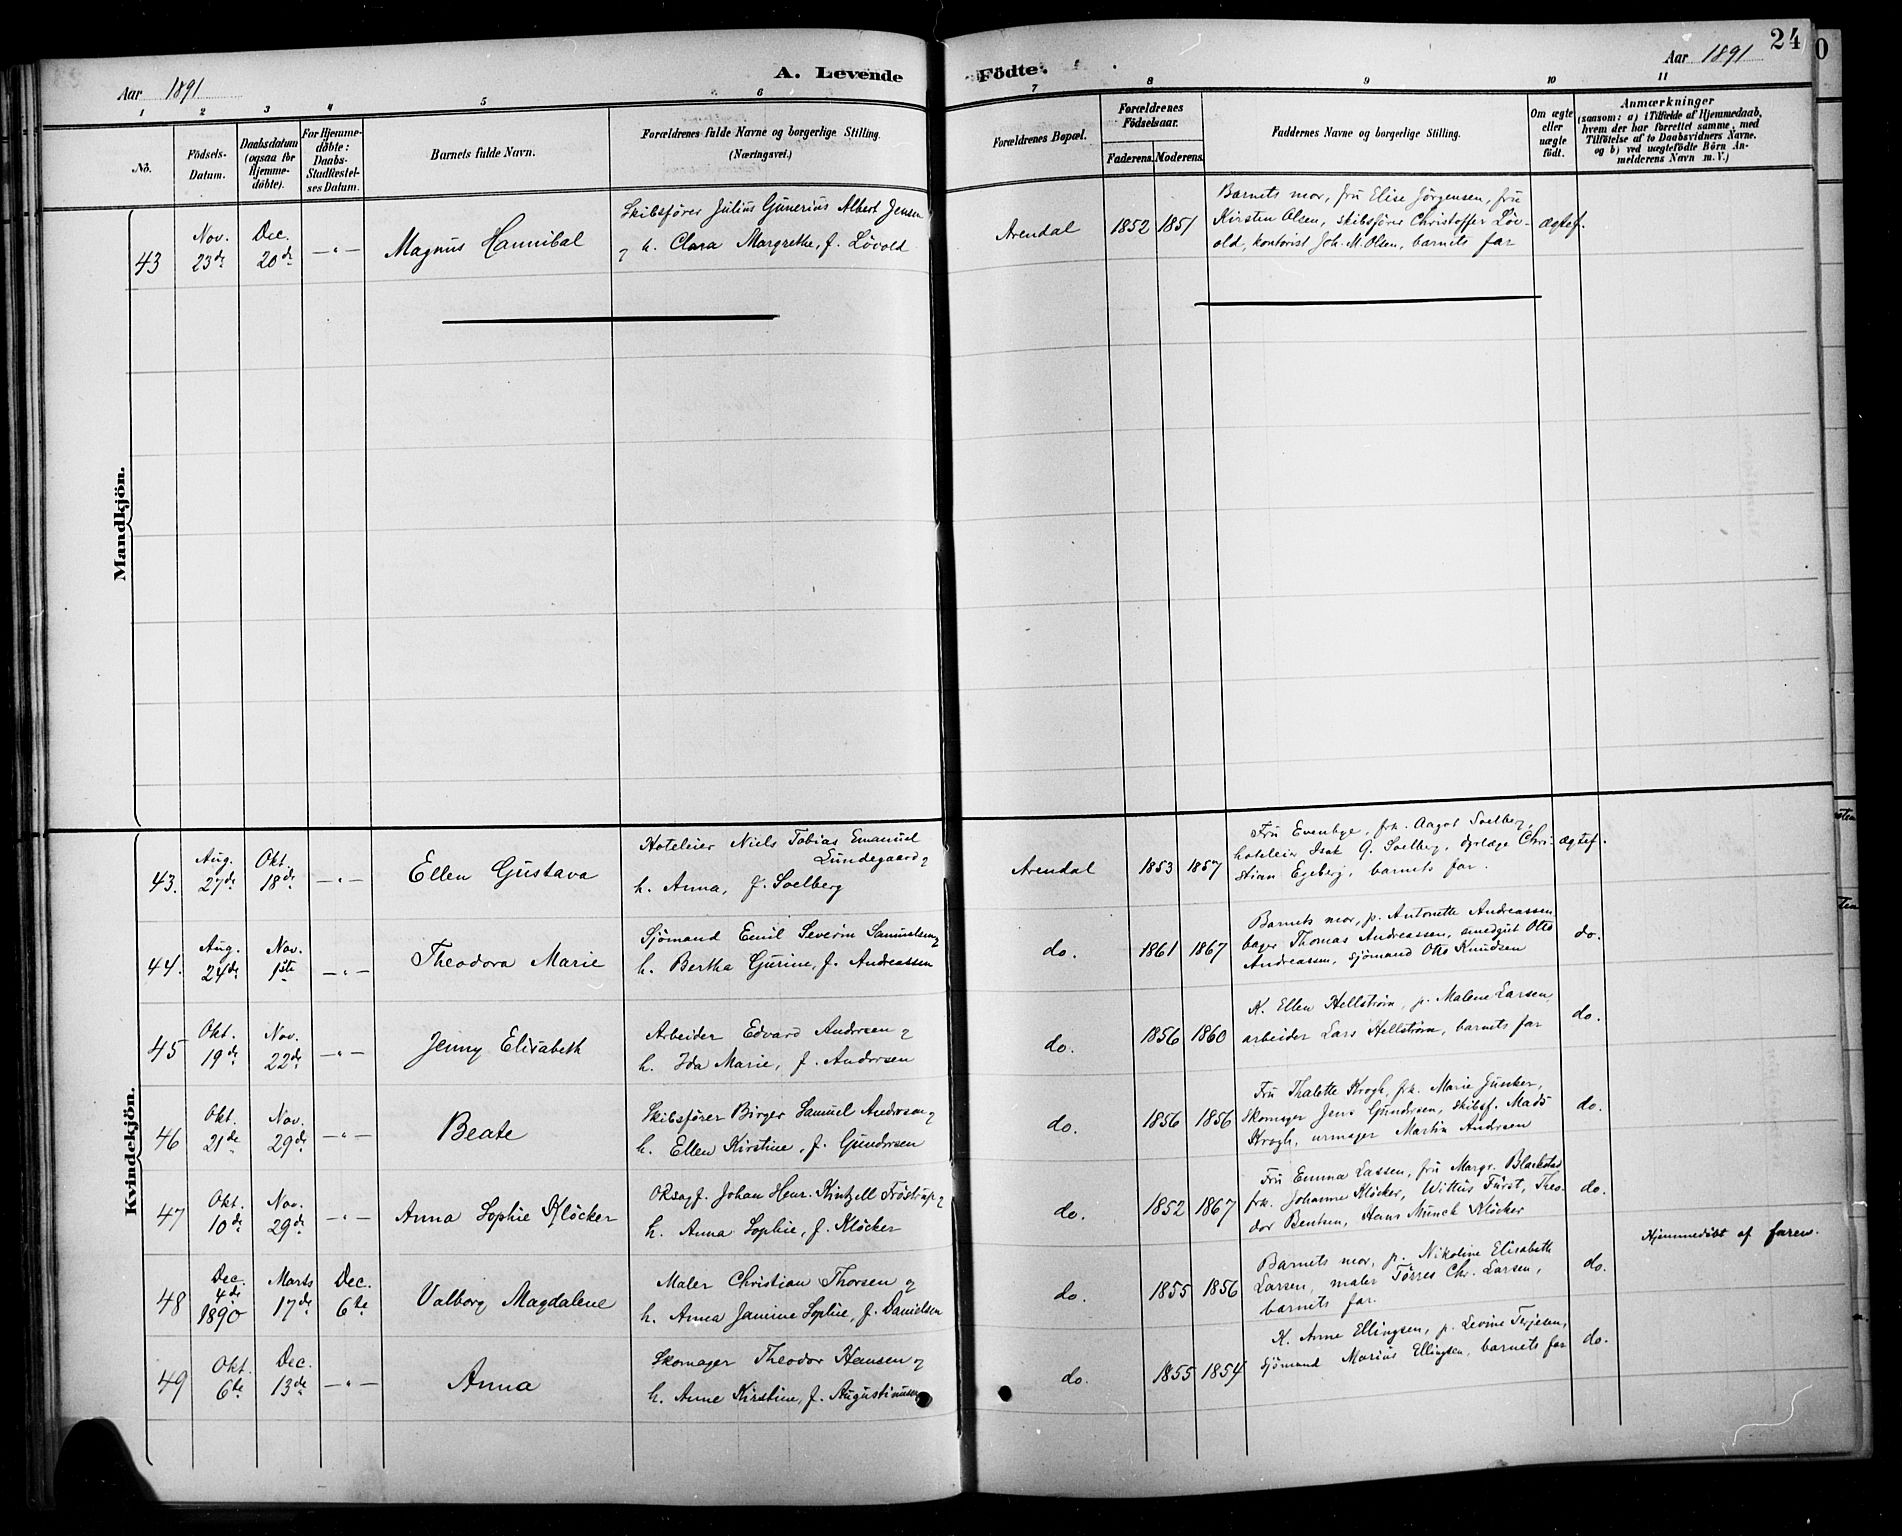 Aar 1891
A. Levende
Födte.
Aar 1891
24
1 2 3 4 5 6 7 8 9 10 11
No.
Födsels-
Datum.
Daabsdatum
(ogsaa for
Hjemme-
döbte).
For Hjemme-
döbte:
Daabs-
Stadfæstel-
ses Datum.
Barnets fulde Navn.
Forældrenes fulde Navne og borgerlige Stilling.
(Næringsvei.)
Forældrenes Bopæl.
Forældrenes
Födselsaar.
Faderens. Moderens.
Faddernes Navne og borgerlige Stilling.
Om ægte
eller
uægte
födt.
Anmærkninger
(saasom: a) i Tilfælde af Hjemmedaab,
hvem der har forrettet samme, med
Tilföielse af to Daabsvidners Navne.
og b) ved uægtefödte Börn An-
melderens Navn m. V.)
Mandkjön.
43
Nov.
23de
Dec.
20de
—„—
Magnus Hannibal
Skibsfører Julius Gunerius Albert Jensen
og h. Clara Margrethe, f. Løvold
Arendal
1852 1851
Barnets mor, fru Elise Jørgensen, fru
Kirsten Olsen, skibsfører Christoffer Løv-
old, kontorist Joh. M. Olsen, barnets far
ægtef.
Kvindekjön.
43.
Aug.
27de
Okt.
18de
—„—
Ellen Gustava
Hoteleier Niels Tobias Emanuel
Lundegaard og
h. Anna, f. Soelberg
Arendal
1853 1857
Fru Evenbye, frk. Aagot Soelberg,
hoteleier Isak G. Soelberg, dyrlæge Chri-
stian Egeberg, barnets far.
ægtef.
44.
Aug.
24de
Nov.
1ste
—„—
Theodora Marie
Sjømand Emil Severin Samuelsen og
h. Bertha Gurine, f. Andreassen
do.
1861 1867
Barnets mor, p. Antonette Andreassen
bager Thomas Andreassen, smedgut Otto
Andreassen, sjømand Otto Knudsen
do.
45
Okt.
19de
Nov.
22de
—„—
Jenny Elisabeth
Arbeider Edvard Andersen og
h. Ida Marie, f. Andersen
do.
1856 1860
K. Ellen Hellstrøm, p. Malene Larsen,
arbeider Lars Hellstrøm, barnets far
do.
46
Okt.
21de
Nov.
29de
—„—
Beate
Skibsfører Birger Samuel Andersen og
h. Ellen Kirstine, f. Gundersen
do.
1856 1856
Fru Thalette Krogh, frk. Marie Junker,
skomager Jens Gundersen, skibsf. Mads
Krogh, urmager Martin Andersen
do.
47
Okt.
10de
Nov.
29de
—„—
Anna Sophie Kløcker
Oksagf. Johan Henr. Kintzell Frøstrup og
h. Anna Sophie, f. Kløcker
do.
1852 1867
Fru Emma Lassen, fru Margr. Blackstad
frk. Johanne Kløcker, Wittus Fürst, Theo-
dor Bentsen, Hans Munck Kløcker
do.
48
Dec.
4de
1890
Marts
17de
Dec.
6te
Valborg Magdalene
Maler Christian Thorsen og
h. Anna Janine Sophie, f. Danielsen
do.
1855 1856
Barnets mor, p. Nikoline Elisabeth
Larsen, maler Tørres Chr. Larsen,
barnets far.
do.
Hjemmedøbt af faren.
49
Okt.
6te
Dec.
13de
—„—
Anna
Skomager Theodor Hansen og
h. Anne Kirstine, f. Augustinusen
do.
1855 1854
K. Anne Ellingsen, p. Levine Terjesen,
sjømand Marius Ellingsen, barnets far
do.